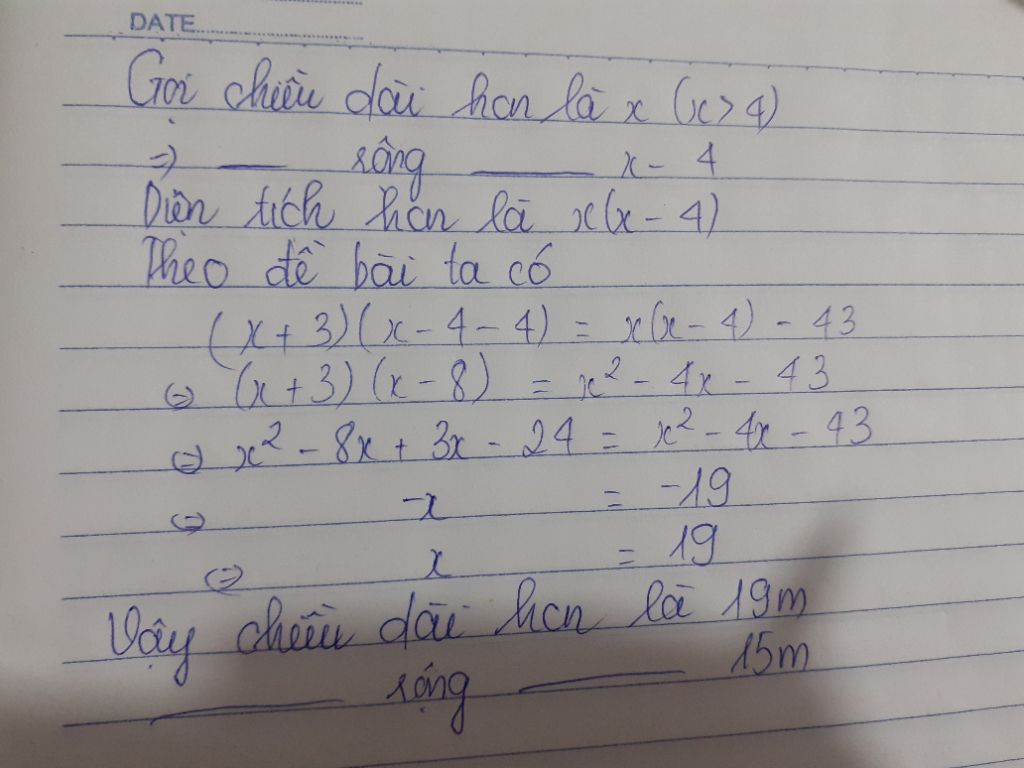 DATE
Gọi chiều dài hcn là x (x > 4)
=> — rộng — x - 4
Diện tích hcn là x(x - 4)
Theo đề bài ta có
(x + 3)(x - 4 - 4) = x(x - 4) - 43
<=> (x + 3)(x - 8) = x² - 4x - 43
<=> x² - 8x + 3x - 24 = x² - 4x - 43
<=> -x = -19
<=> x = 19
Vậy chiều dài hcn là 19m
— rộng — 15m